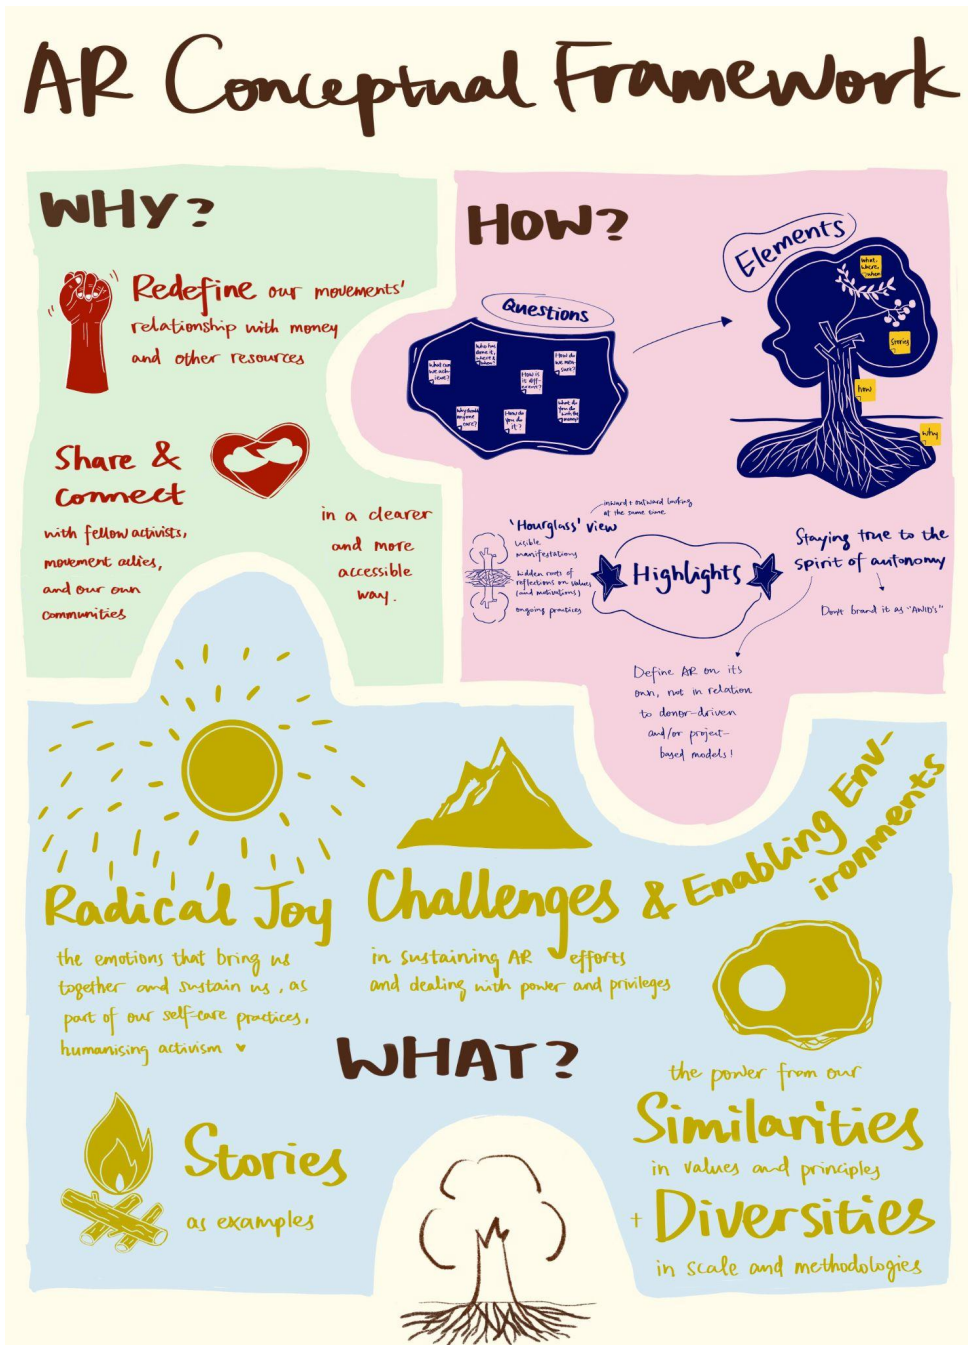 AR Conceptual Framework
WHY?
Redefine our movements'
relationship with money
and other resources
Share &
connect
with fellow activists,
movement allies,
and our own
communities
in a clearer
and more
accessible
way.
HOW?
Questions
What can
we ach-
ieve?
Who has
done it,
where &
when?
How is
it diff-
erent?
How do
we mea-
sure?
Why should
anyone
care?
How do
you do
it?
What do
you do
with the
money?
Elements
What,
where,
when
Stories
how
Why
'Hourglass' view
inward + outward looking
at the same time
visible
manifestations
hidden roots of
reflections on values
(and motivations)
ongoing practices
Highlights
Staying true to the
spirit of autonomy
Don't brand it as "AWID's"
Define AR on its
own, not in relation
to donor-driven
and/or project-
based models!
Radical Joy
the emotions that bring us
together and sustain us, as
part of our self-care practices,
humanising activism
Challenges & Enabling Env-
ironments
in sustaining AR efforts
and dealing with power and privileges
WHAT?
Stories
as examples
the power from our
Similarities
in values and principles
+ Diversities
in scale and methodologies